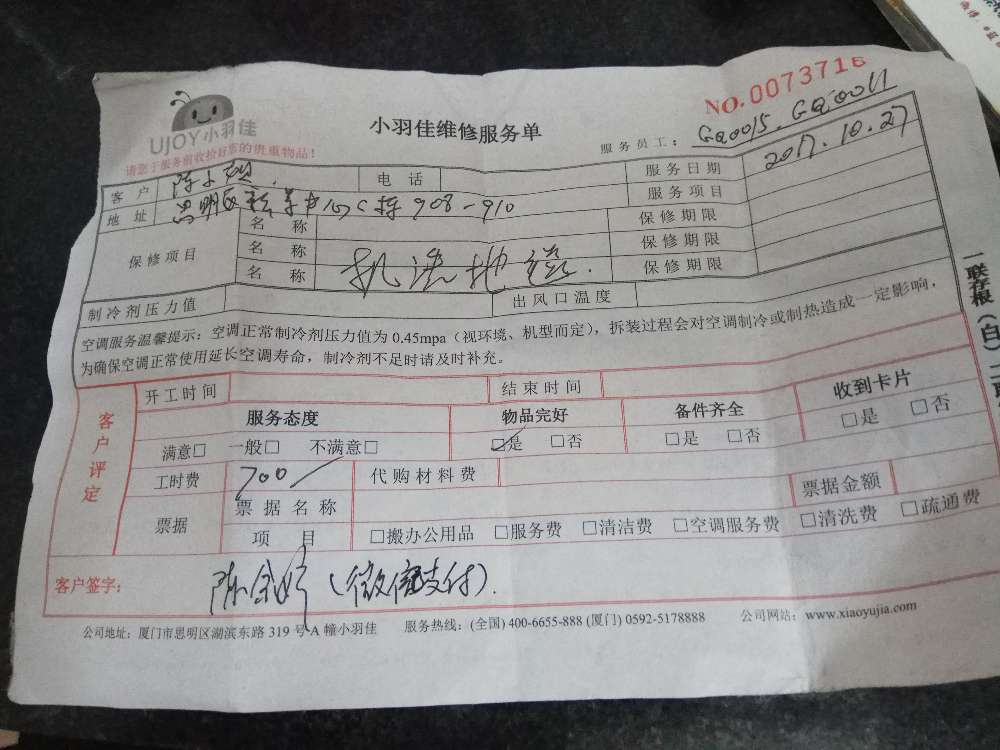 UJOY小羽佳
请您于服务前收拾好您的贵重物品！
小羽佳维修服务单
NO.0073716
服务员工： GQ0015. GQ0011
客户 陈 电话 服务日期 2017.10.27
地址 思明区 C栋 908-910 服务项目
保修项目 名称 保修期限
名称 保修期限
名称 机洗地毯. 保修期限
制冷剂压力值 出风口温度
空调服务温馨提示：空调正常制冷剂压力值为 0.45mpa（视环境、机型而定），拆装过程会对空调制冷或制热造成一定影响，
为确保空调正常使用延长空调寿命，制冷剂不足时请及时补充。
客户评定
开工时间 结束时间
服务态度 物品完好 备件齐全 收到卡片
满意□ 一般□ 不满意□ ☑是 □否 □是 □否 □是 □否
工时费 700/ 代购材料费
票据 票据名称 票据金额
项目 □搬办公用品 □服务费 □清洁费 □空调服务费 □清洗费 □疏通费
客户签字： 陈 （微信支付）.
公司地址：厦门市思明区湖滨东路 319 号 A 幢小羽佳 服务热线：(全国) 400-6655-888 (厦门) 0592-5178888 公司网站：www.xiaoyujia.com
一联存根（白）二联